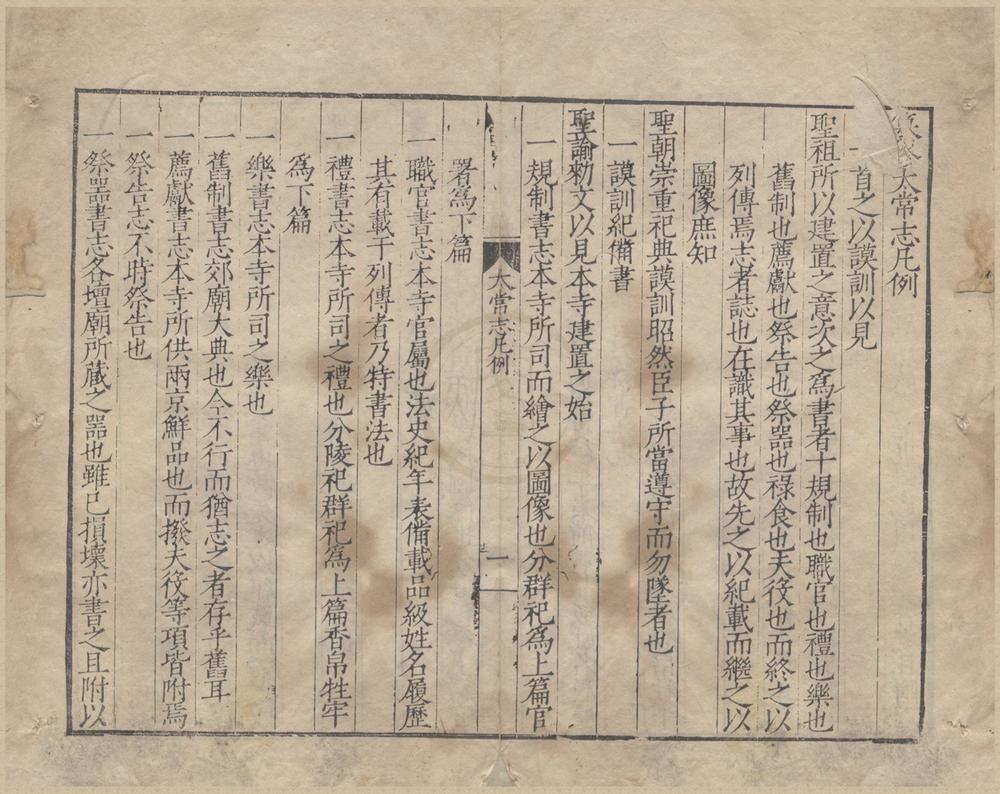 太常志凡例
一首之以謨訓以見
聖祖所以建置之意次之爲書者十規制也職官也禮也樂也
舊制也薦獻也祭告也祭器也祿食也夫役也而終之以
列傳焉志者誌也在識其事也故先之以紀載而繼之以
圖像庶知
聖朝崇重祀典謨訓昭然臣子所當遵守而勿墜者也
一謨訓紀備書
聖諭勑文以見本寺建置之始
一規制書志本寺所司而繪之以圖像也分群祀爲上篇官
太常志凡例
一
署爲下篇
一職官書志本寺官屬也法史紀年表備載品級姓名履歷
其有載于列傳者乃特書法也
一禮書志本寺所司之禮也分陵祀群祀爲上篇香帛牲牢
爲下篇
一樂書志本寺所司之樂也
一舊制書志郊廟大典也今不行而猶志之者存乎舊耳
一薦獻書志本寺所供兩京鮮品也而撥夫役等項皆附焉
一祭告志不時祭告也
一祭器書志各壇廟所藏之器也雖已損壞亦書之且附以